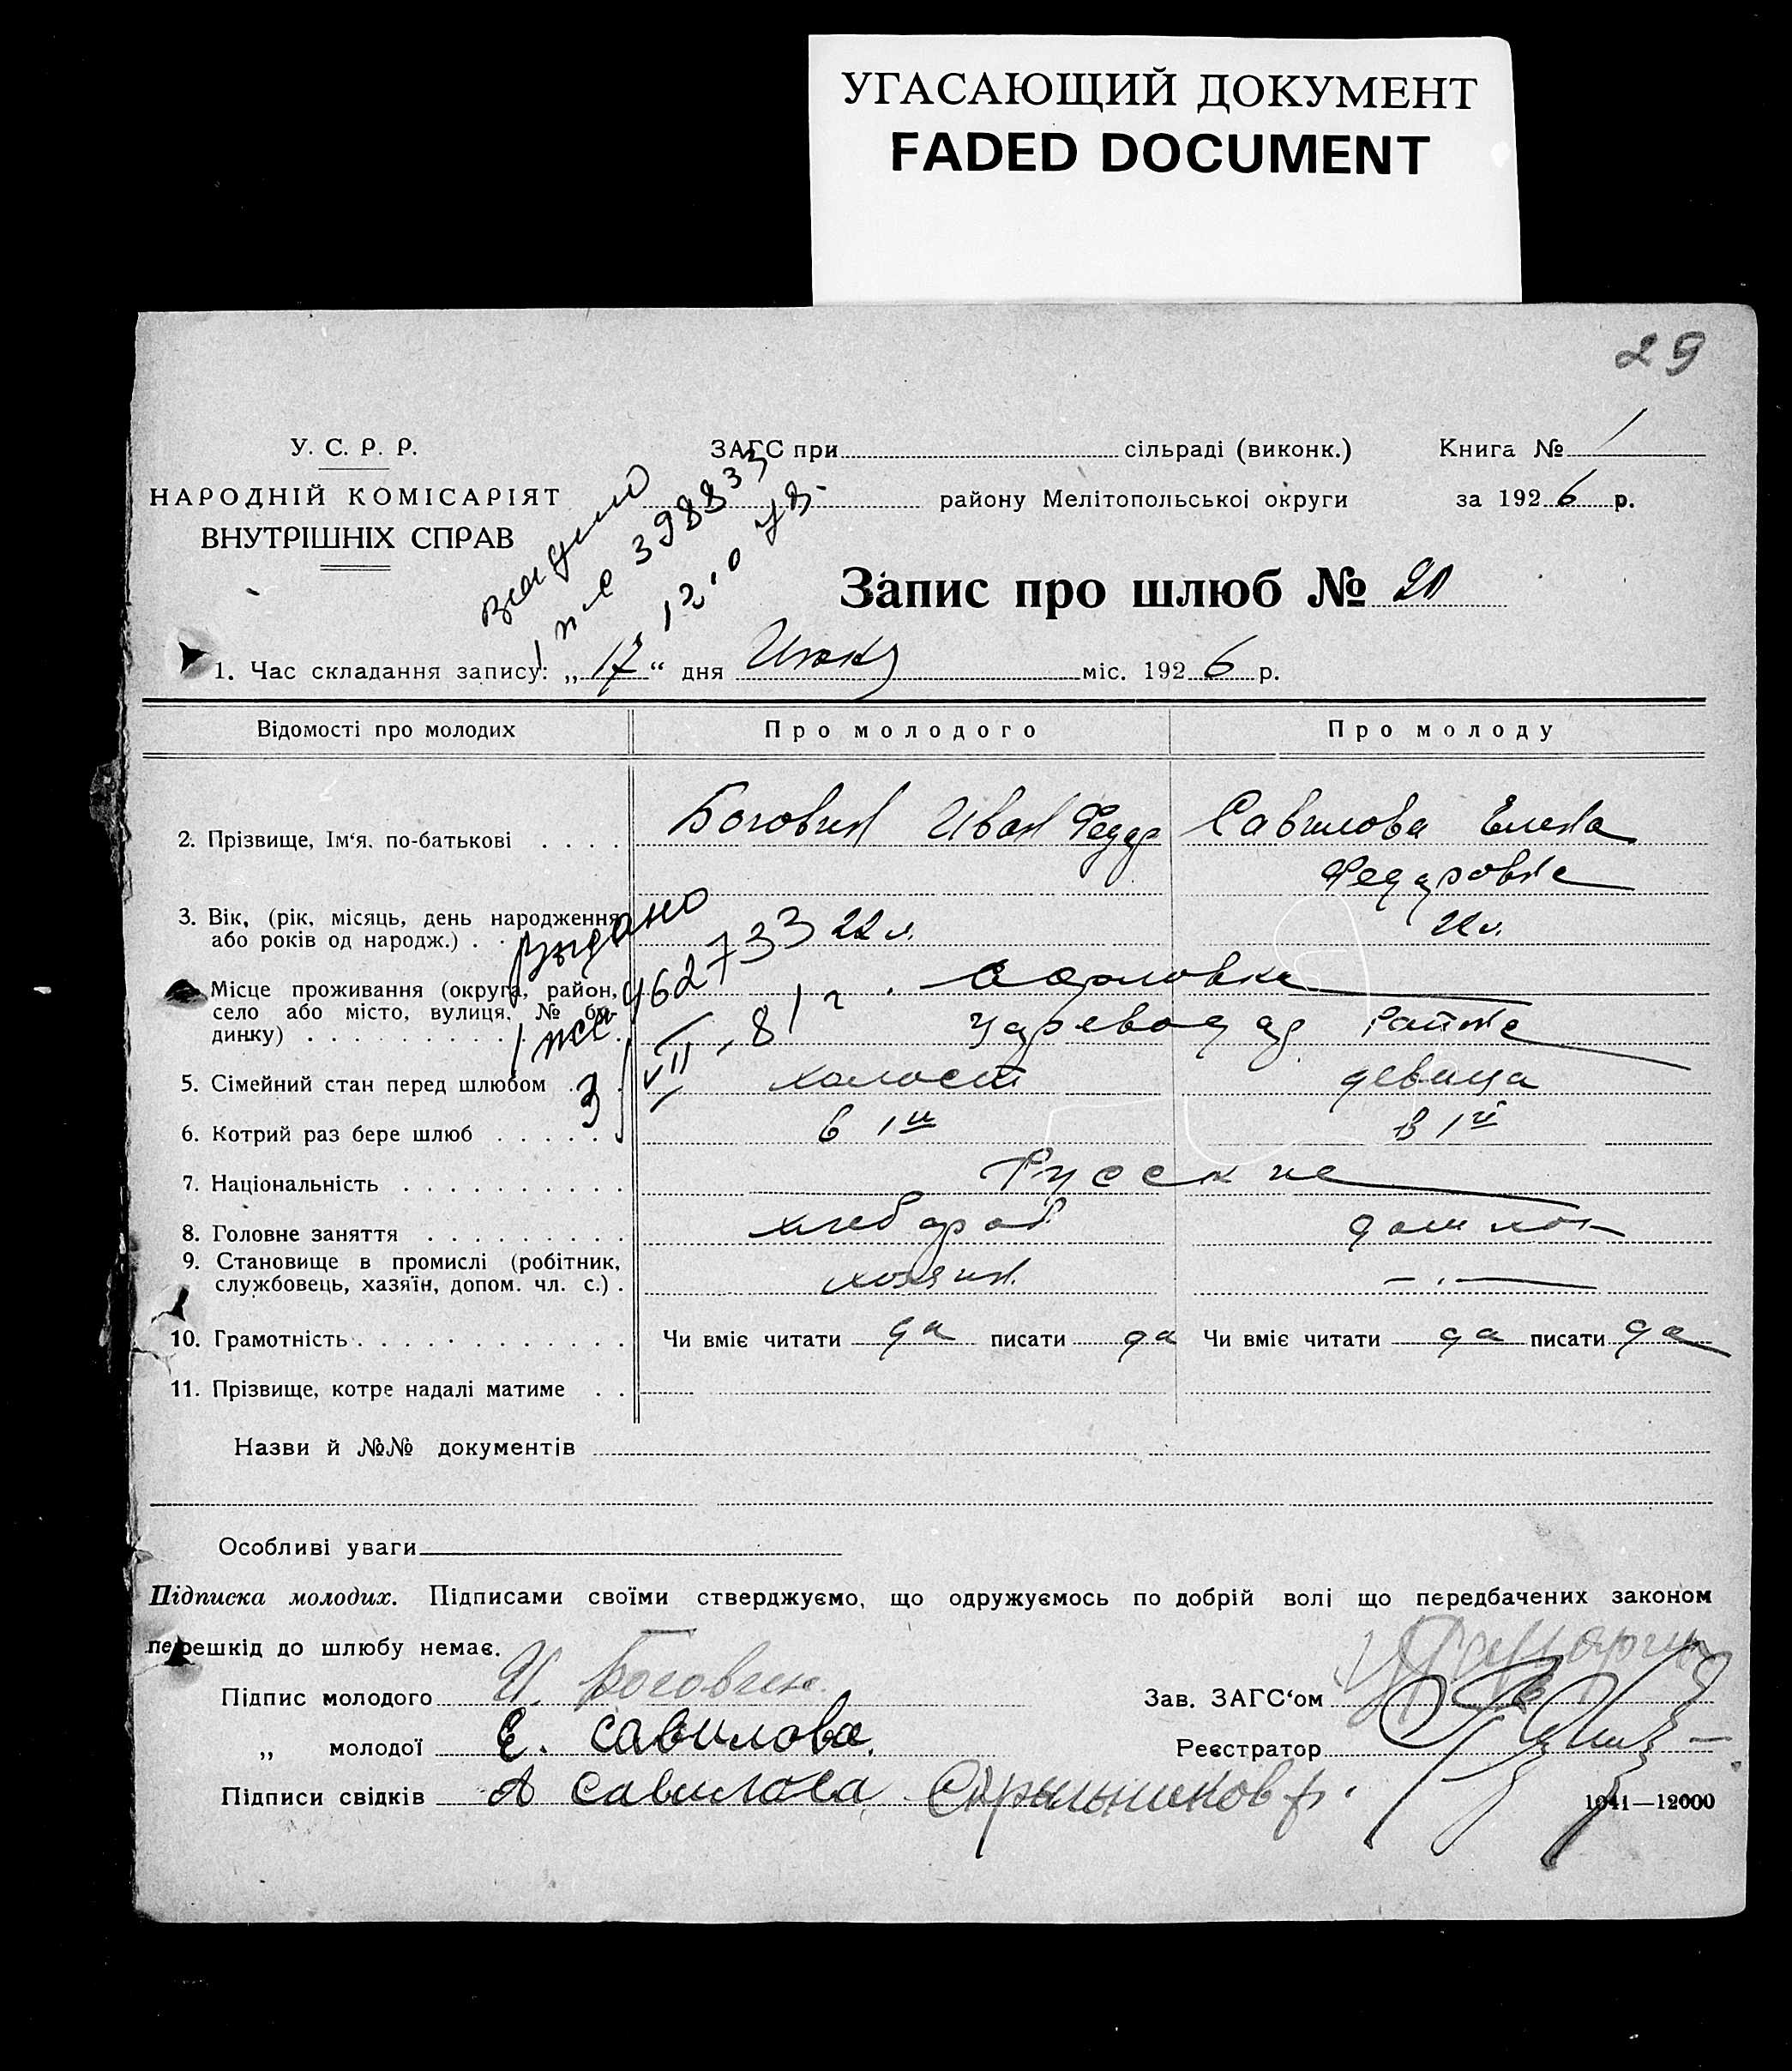 УГАСАЮЩИЙ ДОКУМЕНТ
FADED DOCUMENT
29
У. С. Р. Р.
НАРОДНІЙ КОМІСАРІЯТ
ВНУТРІШНІХ СПРАВ
ЗАГС при сільраді (виконк.)
Книга № 1
району Мелітопольськоі округи
за 1926 р.
Запис про шлюб №
1. Час складання запису: „17“ дня міс. 1926 р.
Відомості про молодих
Про молодого
Про молоду
2. Прізвище, Ім‘я. по-батькові . . . .
Боговин Иван Федор
Савилова Елена
Федоровна
3. Вік, (рік, місяць, день народження
або років од народж.) . .
22 л.
Выдано
462733
Місце проживання (округа, район,
село або місто, вулиця, № бу-
динку) . . . . . . . . . .
района
5. Сімейний стан перед шлюбом . .
холост
девица
6. Котрий раз бере шлюб . . . . . .
в 1й
в 1й
7. Національність . . . . . . . . . .
Русские
8. Головне заняття . . . . . . . . .
хлебороб
дом хоз
9. Становище в промислі (робітник,
службовець, хазяїн, допом. чл. с.) .
хозяин.
10. Грамотність . . . . . . . . . . .
Чи вміє читати да писати да
Чи вміє читати да писати да
11. Прізвище, котре надалі матиме . .
Назви й №№ документів
Особливі уваги
Підписка молодих. Підписами своїми стверджуємо, що одружуємось по добрій волі що передбачених законом
перешкід до шлюбу немає.
Підпис молодого И. Боговин
Зав. ЗАГС‘ом
„ молодої Е. Савилова.
Реєстратор
Підписи свідків А Савилова
1041—12000